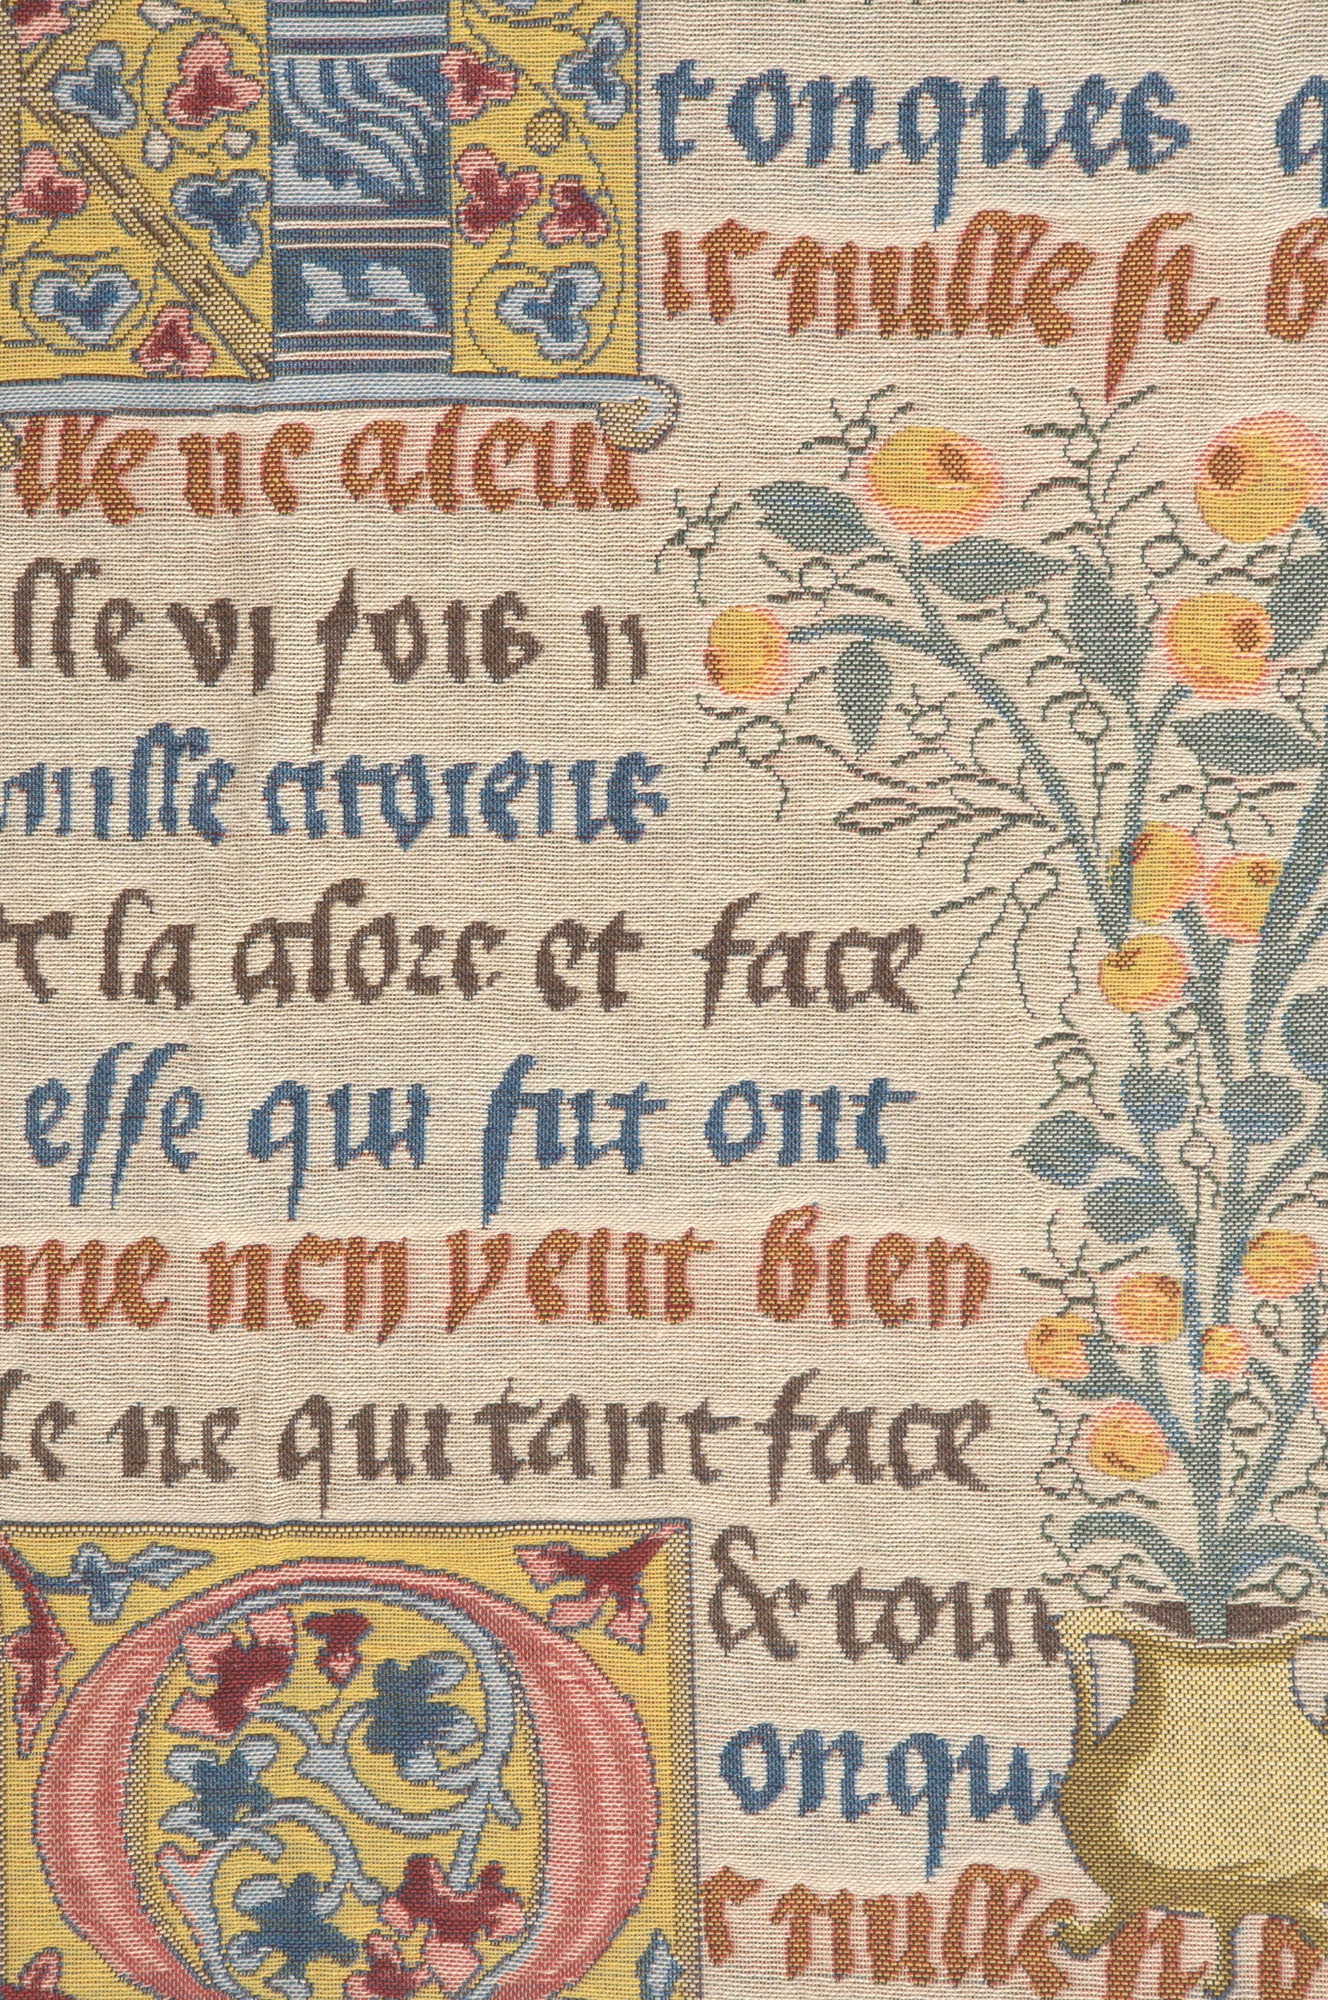 tonques
it nulle si b
lle ne aleui
lle vi fois n
nulle citoiens
la alore et face
esse qui fut ont
me nen veut bien
le ne qui tant face
& tour
onqu
r nulle si b